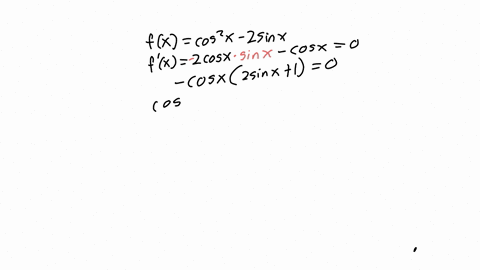 f(x) = cos²x - 2sinx
f'(x) = -2cosx · sinx - cosx = 0
-cosx(2sinx + 1) = 0
cos